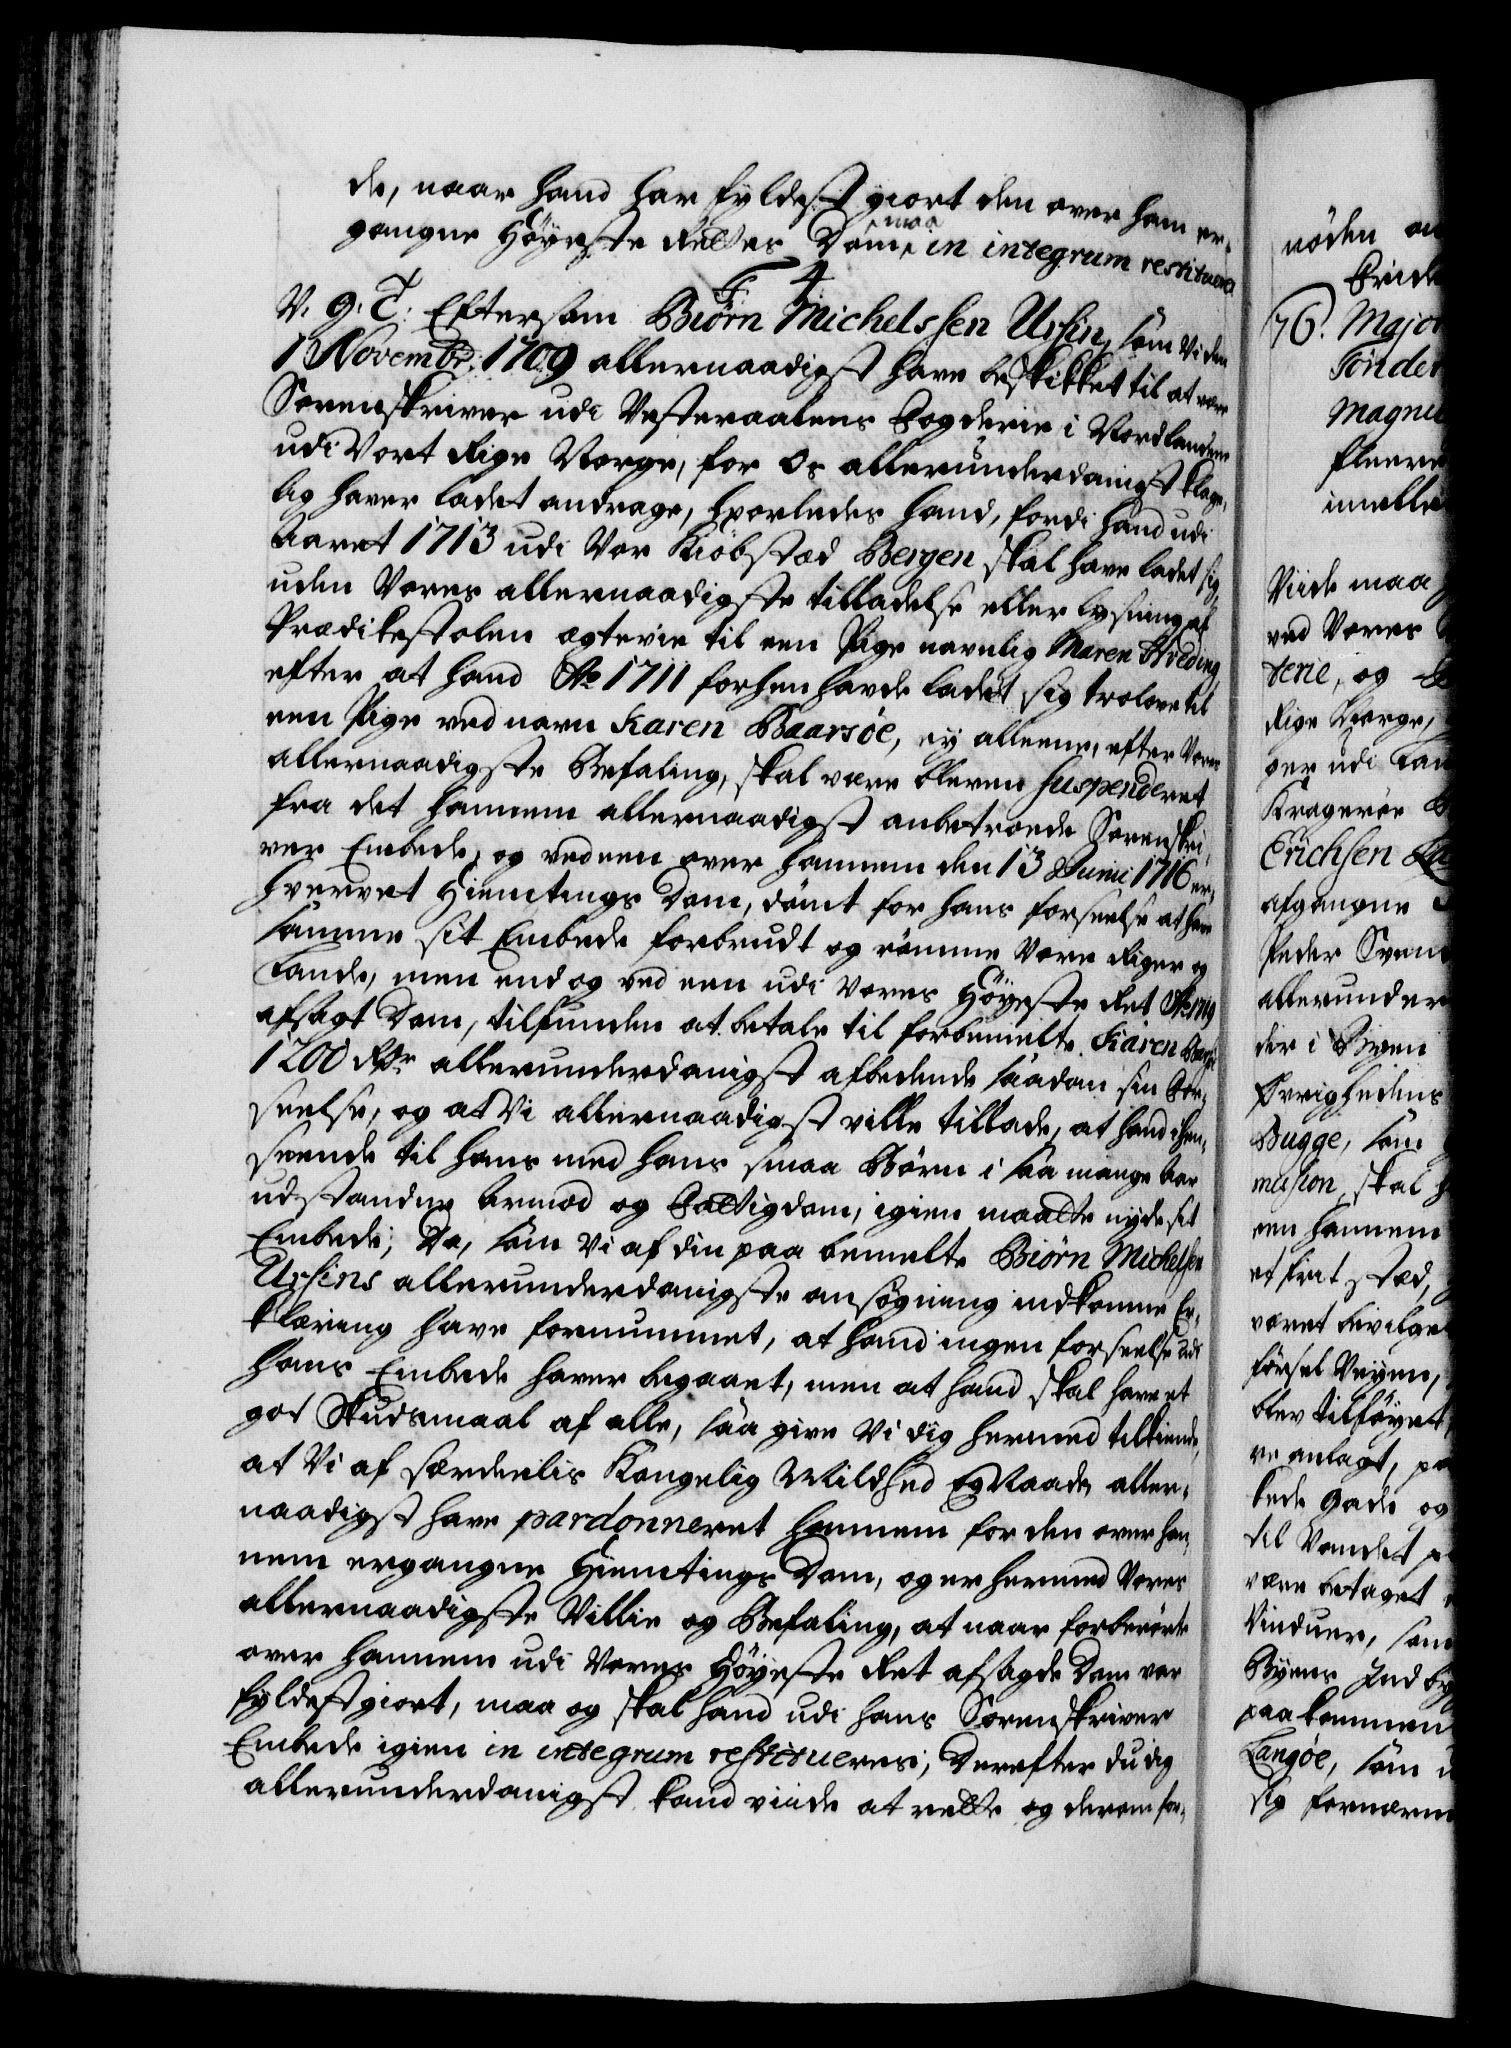 de, naar hand har fyldest giort den over ham er-
gangne Höyeste Rettes Dom, maa in integrum restitueres
F 4
V. G. T: Eftersom Biörn Michelssen Ursin, som Vi den
1 Novembr: 1709 allernaadigst have beskikket til at være
Sorenskriver udi Vesteraalens Fogderie i Nordlandene
udi Vort Rige Norge, for Os allerunderdanigst klage,
lig haver ladet andrage, hvorledes hand, fordi hand udi
Aaret 1713 udi Vor Kiöbstad Bergen skal have ladet sig
uden Vores allernaadigste tilladelse eller lysning af
Prædikestolen ægtevie til een Pige navnlig Maren Hveding
efter at hand Ao 1711 forhen havde ladet sig trolove til
een Pige ved navn Karen Baarsöe, ey alleene, efter Vores
allernaadigste Befaling, skal være bleven suspenderet
fra det hannem allernaadigst anbetroede Sorenskri-
ver Embede, og ved een over hannem den 13 Junii 1716 er-
hvervet Hiemtings Dom, dömt for hans forseelse at have
samme sit Embede forbrudt og römme Vore Riger og
Lande, men end og ved een udi Vores Höyeste Ret Ao 1719
afsagt Dom, tilfunden at betale til forbemelte Karen Baarsöe
1200 Rdr allerunderdanigst afbedende saadan sin For-
seelse, og at Vi allernaadigst ville tillade, at hand i hen-
seende til hans med hans smaa Börn i saa mange Aar
udstandne Armod og Fattigdom, igien maatte nyde sit
Embede; Da, som Vi af din paa bemelte Biörn Michelsen
Ursins allerunderdanigste ansögning indkomne Er-
klæring have fornummet, at hand ingen forseelse udi
hans Embede haver begaaet, men at hand skal have et
got Skudsmaal af alle, saa give Vi dig hermed tilkiende,
at Vi af særdeelis Kongelig Mildhed og Naade aller-
naadigst have pardonneret hannem for den over han-
nem ergangne Hiemtings Dom, og er hermed Vores
allernaadigste Villie og Befaling, at naar forberörte
over hannem udi Vores Höyeste Ret afsagde Dom vor
fyldestgiort, maa og skal hand udi hans Sorenskriver
Embede igien in integrum restitueres; Derefter du dig
allerunderdanigst kand viide at rette og derom for-
nöden
76. Major
Tönder
Magnu
fleere
imelle
Viide maa
ved Vores
terie, og
Rige Norge,
ger udi
Krageröe
Erichsen
afgangne
Peder Svend
allerunder
der i Byen
Övrighedens
Bugge, som
mision, skal
een hannem
et frit sted,
været bevilge
förset Veyen,
blev tilföyet,
re anlagt, paa
bede Gade og
til Vandet
være betaget
Vinduer, som
Byens Indby
paakommen
Langöe, som
sig fornærm